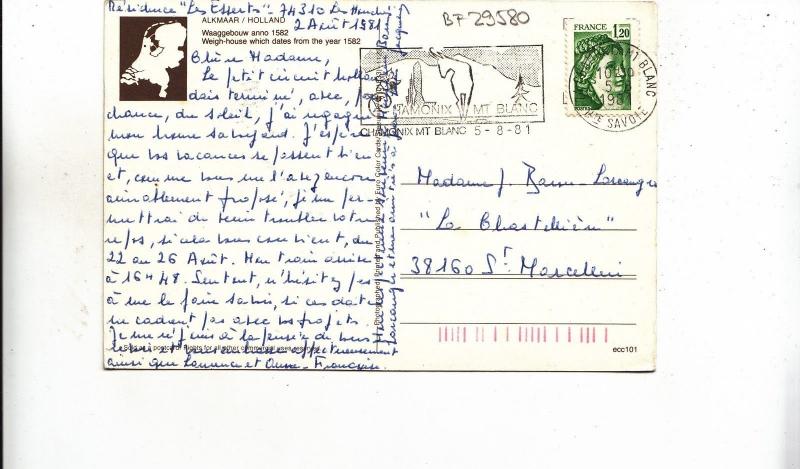 Résidence "Les Esserts" - 74310 Les Houches
ALKMAAR / HOLLAND
2 Août 1981
Waaggebouw anno 1582
Weigh-house which dates from the year 1582
Chère Madame,
Le petit circuit hollan
dais terminé, avec, par
chance, du soleil, j'ai regagné
mon home savoyard. J'espère
que vos vacances se passent bien
et, comme vous me l'avez encore
aimablement proposé, je me per
mettrai de venir troubler votre
repos, si cela vous convient, du
22 au 26 Août. Mon train arrive
à 16H48. Surtout, n'hésitez pas
à me le faire savoir, si ces dates
ne cadrent pas avec vos projets.
Je me réjouis à la pensée de vous
revoir et
affectueusement
ainsi que Laurence et Anne-Françoise.
Jacques
BF 29580
FRANCE
1,20
CHAMONIX MT BLANC
CHAMONIX MT BLANC 5-8-81
MT BLANC
5-8
1981
HTE SAVOIE
Madame J.
"La Chastelière"
38160 St Marcellin
ecc101